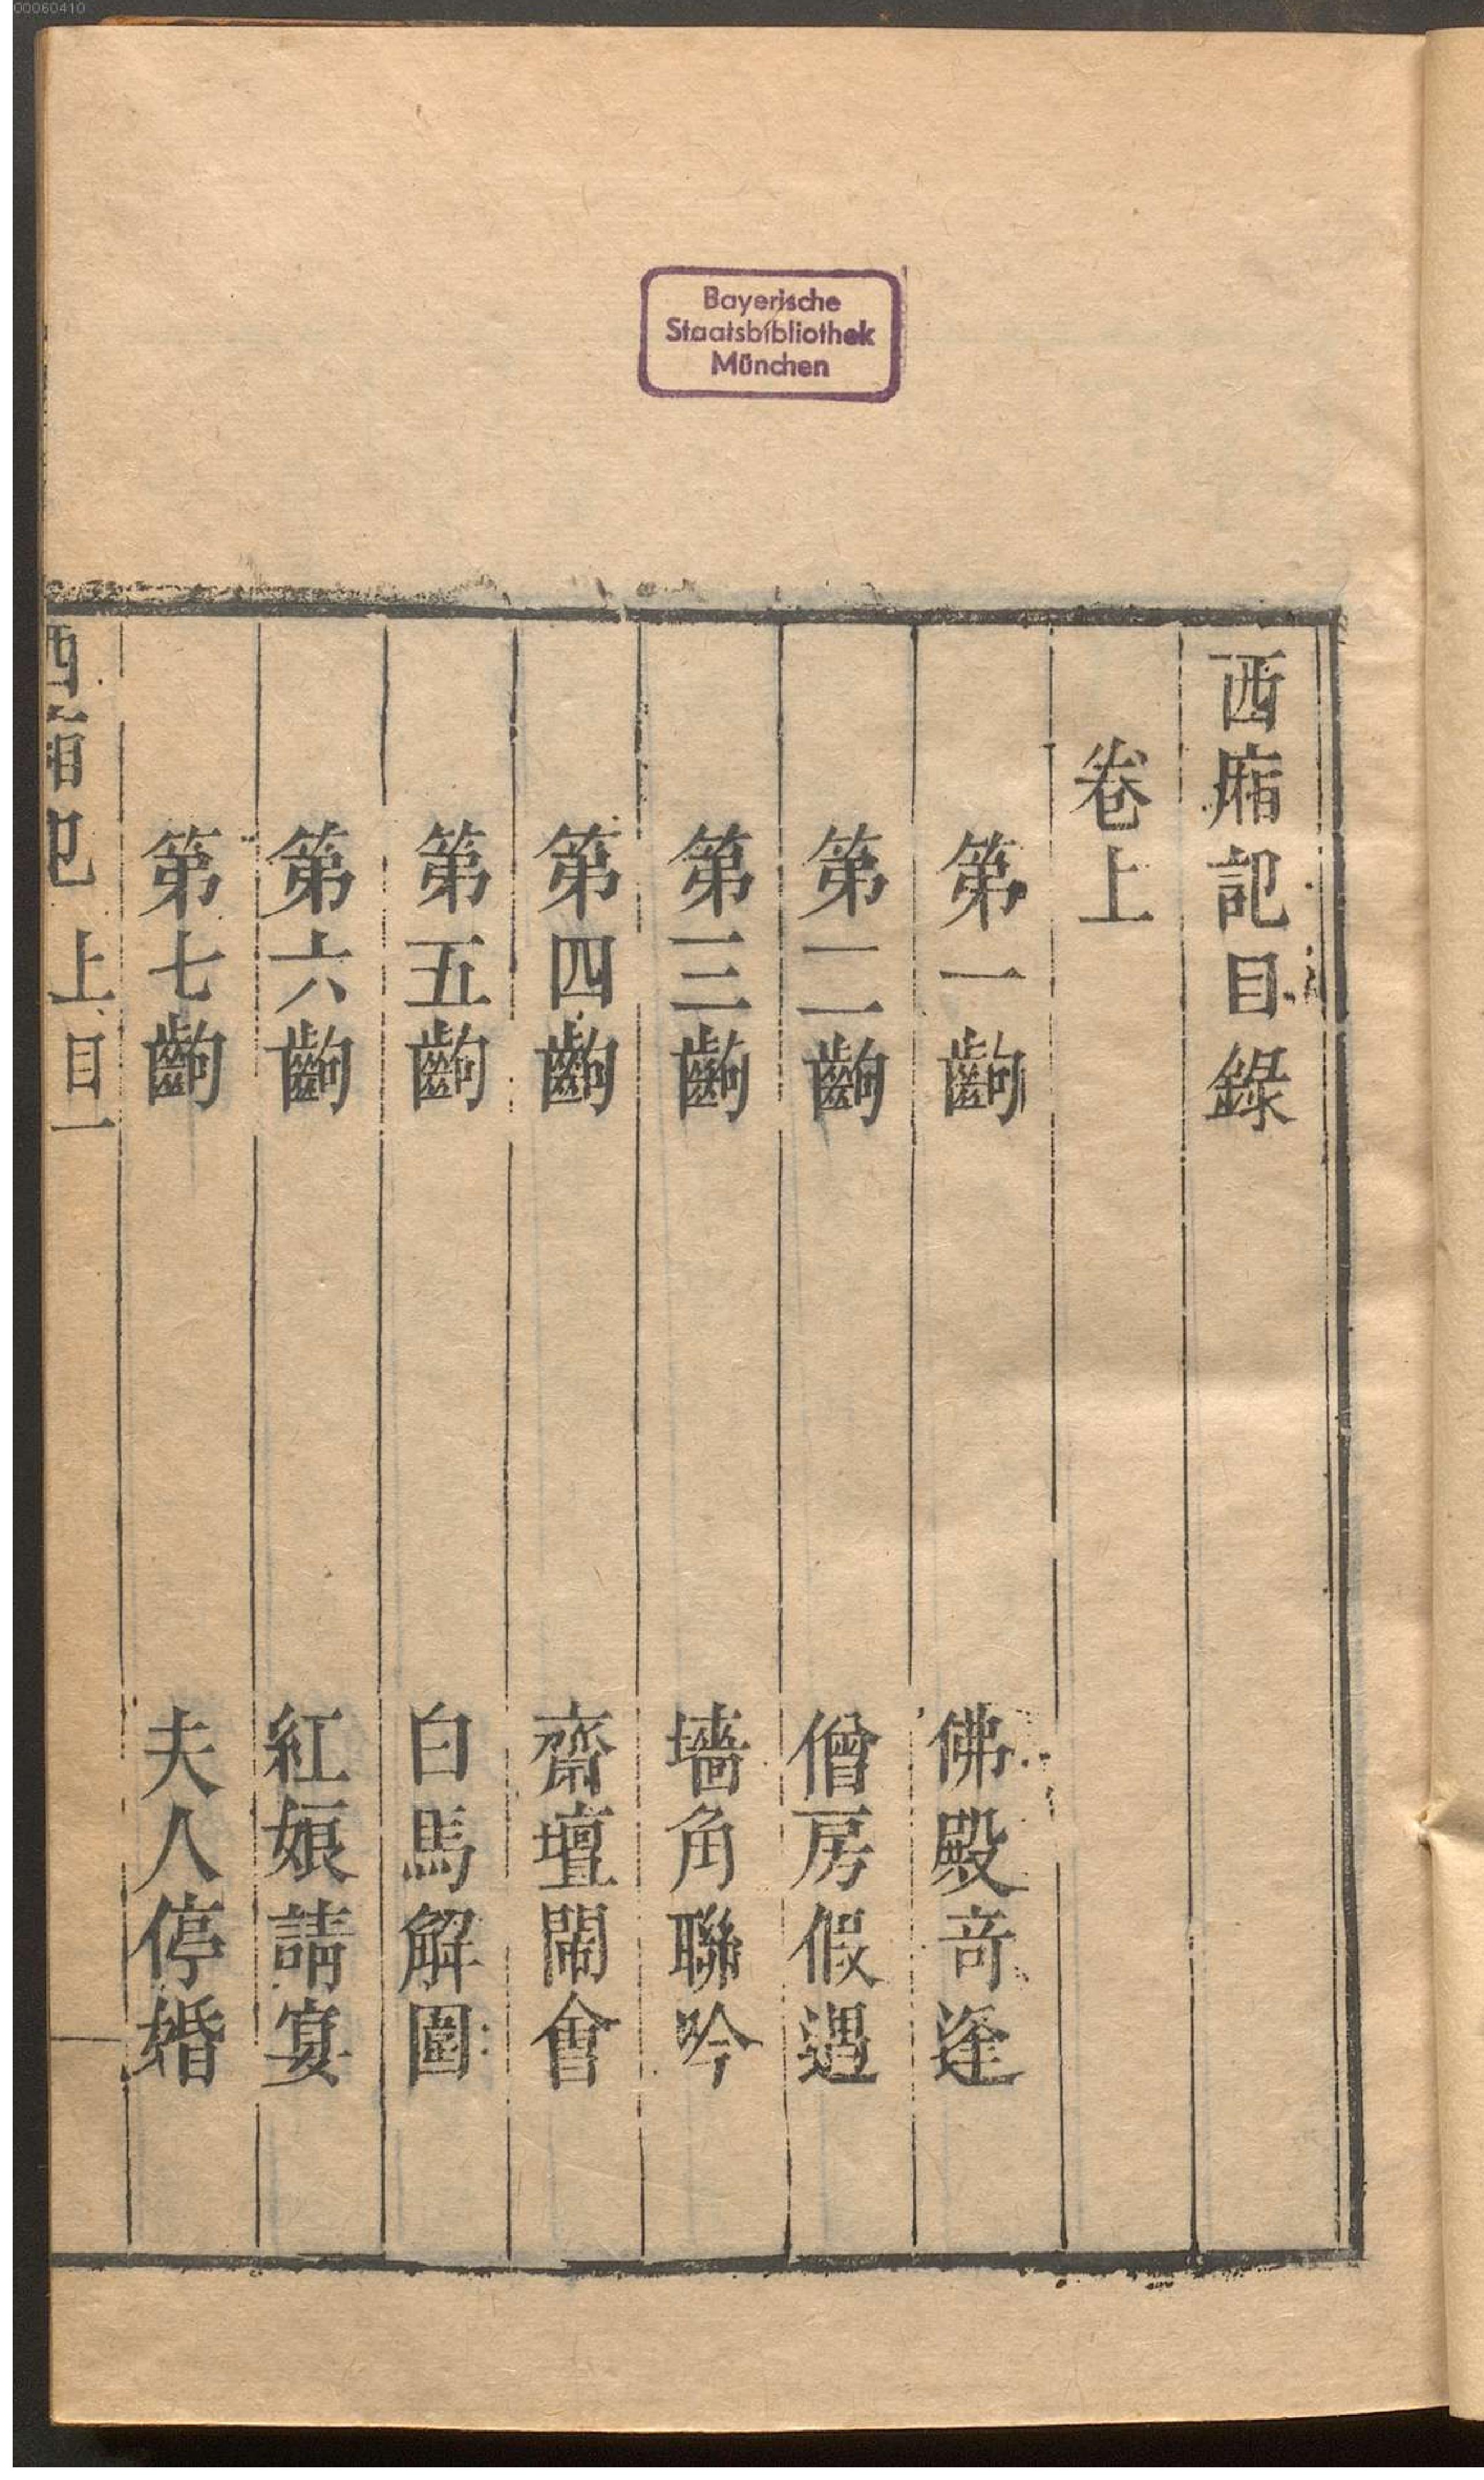 00060410
Bayerische
Staatsbibliothek
München
西廂記目錄
卷上
第一齣 佛殿竒逢
第二齣 僧房假遇
第三齣 墻角聯吟
第四齣 齋壇閙會
第五齣 白馬解圍
第六齣 紅娘請宴
第七齣 夫人停婚
西廂記 上目一